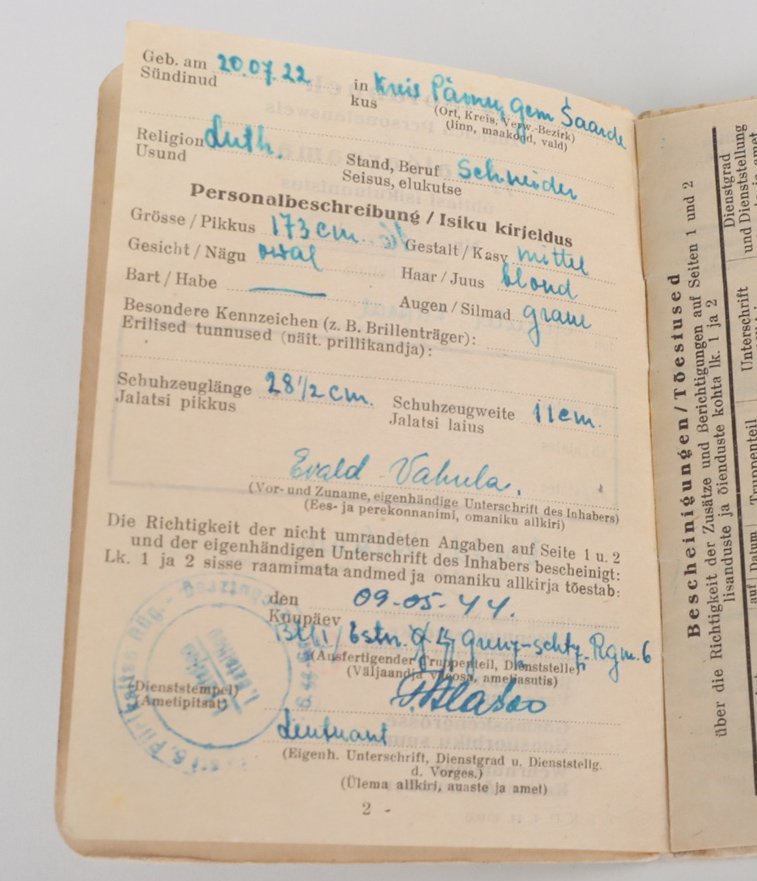 Geb. am 20.07.22 in Kreis Pärnu, gem Saarde
Sündinud kus (Ort, Kreis, Verw.-Bezirk)
(linn, maakond, vald)
Religion Luth. Stand, Beruf Schneider
Usund Seisus, elukutse
Personalbeschreibung / Isiku kirjeldus
Grösse / Pikkus 173 cm. Gestalt / Kasv mittel
Gesicht / Nägu oval Haar / Juus blond
Bart / Habe — Augen / Silmad graue
Besondere Kennzeichen (z. B. Brillenträger):
Erilised tunnused (näit. prillikandja):
Schuhzeuglänge 28 1/2 cm. Schuhzeugweite 11 cm.
Jalatsi pikkus Jalatsi laius
Evald Vahula.
(Vor- und Zuname, eigenhändige Unterschrift des Inhabers)
(Ees- ja perekonnanimi, omaniku allkiri)
Die Richtigkeit der nicht umrandeten Angaben auf Seite 1 u. 2
und der eigenhändigen Unterschrift des Inhabers bescheinigt:
Lk. 1 ja 2 sisse raamimata andmed ja omaniku allkirja tõestab:
den 09.05.44.
Kuupäev
Rgm. 6
(Ausfertigender Truppenteil, Dienststelle)
(Väljaandja väeosa, ametiasutis)
(Dienststempel)
(Ametipitsat)
Leutnant
(Eigenh. Unterschrift, Dienstgrad u. Dienststellg.
d. Vorges.)
(Ülema allkiri, auaste ja amet)
2
Bescheinigungen / Tõestused
über die Richtigkeit der Zusätze und Berichtigungen auf Seiten 1 und 2
lisanduste ja õienduste kohta lk. 1 ja 2
Datum
Truppenteil
Unterschrift
Dienstgrad
und Dienststellung